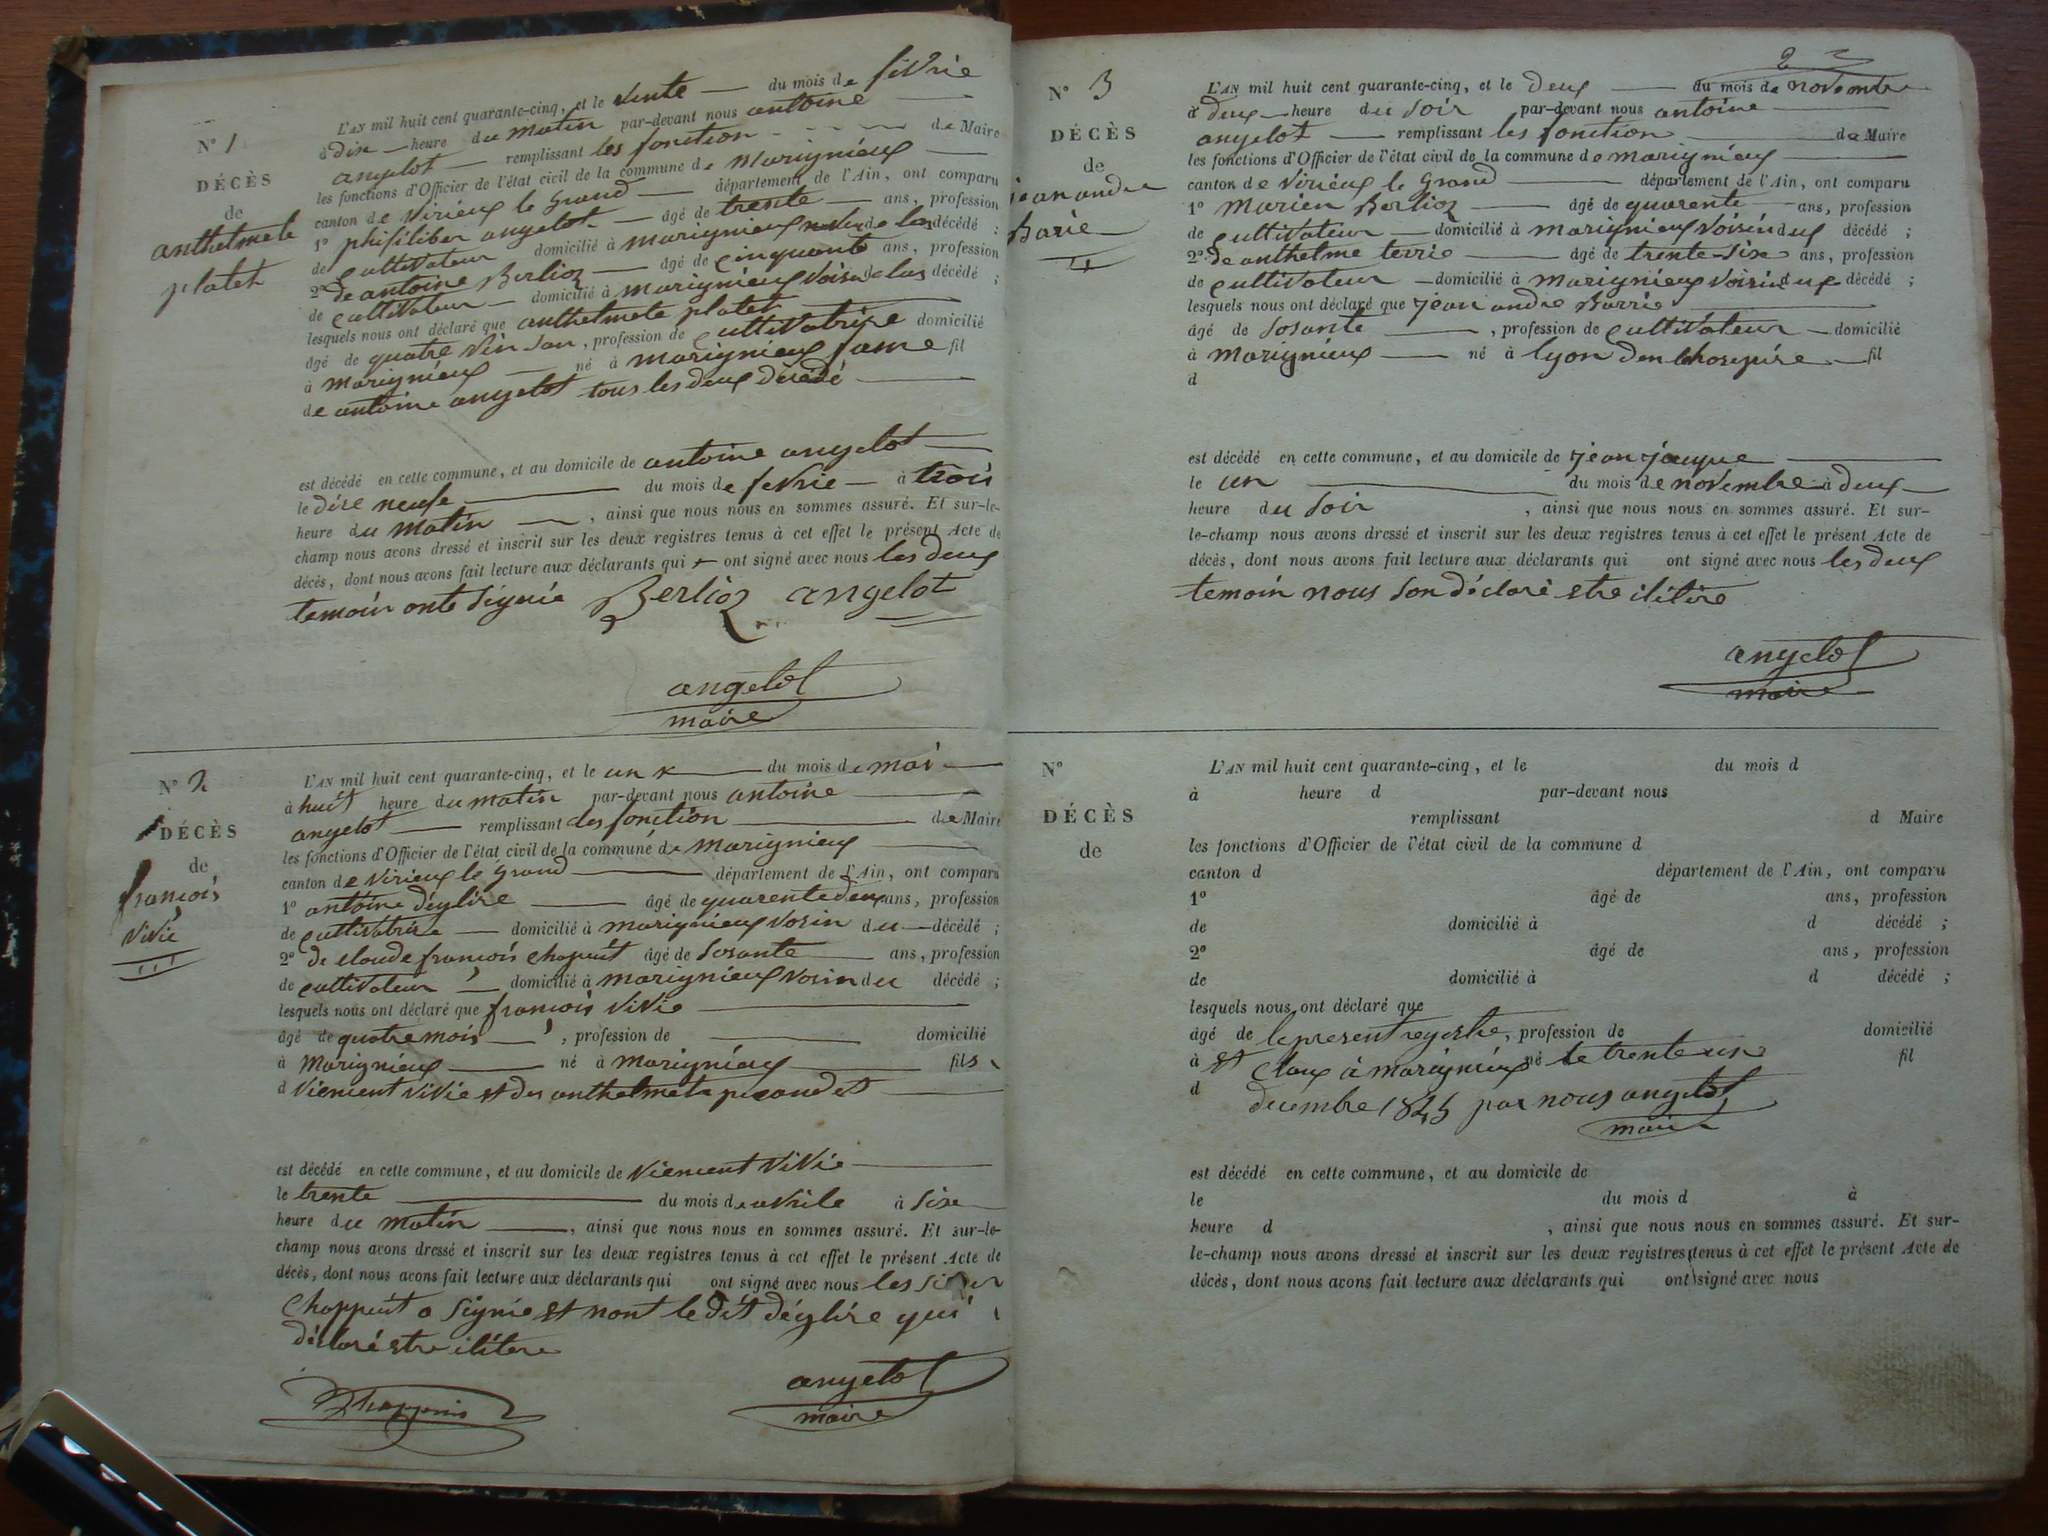 N° 1
DÉCÈS
de
anthelmete
platet
L'AN mil huit cent quarante-cinq, et le vinte du mois de fevrie
à dix heure du matin par-devant nous antoine
angelot remplissant les fonction de Maire
les fonctions d'Officier de l'état civil de la commune de Marignieux
canton de Virieux le Grand département de l'Ain, ont comparu
1° phifiliber angelot âgé de trente ans, profession
de cultivateur domicilié à marignieux de la décédé ;
2° de antoine Berlioz âgé de cinquante ans, profession
de cultivateur domicilié à marignieux voisin de las décédé ;
lesquels nous ont déclaré que anthelmete platet
âgé de quatre vin san, profession de cultivatrise domicilié
à marignieux né à marignieux fame fil
de antoine angelot tous les deux décédé
est décédé en cette commune, et au domicile de antoine angelot
le dixe neufe du mois de fevrie à trois
heure du matin, ainsi que nous nous en sommes assuré. Et sur-le-
champ nous avons dressé et inscrit sur les deux registres tenus à cet effet le présent Acte de
décès, dont nous avons fait lecture aux déclarants qui + ont signé avec nous les deux
temoin onte signié Berlioz angelot
angelot
maire
N° 2
DÉCÈS
de
françois
vivie
L'AN mil huit cent quarante-cinq, et le un x du mois de mai
à huit heure du matin par-devant nous antoine
angelot remplissant les fonction de Maire
les fonctions d'Officier de l'état civil de la commune de marignieux
canton de virieux le grand département de l'Ain, ont comparu
1° antoine déglise âgé de quarentedeux ans, profession
de cultivatrise domicilié à marignieux vosin du décédé ;
2° de claude françois chapuit âgé de sosante ans, profession
de cultivateur domicilié à marignieux vosin du décédé ;
lesquels nous ont déclaré que françois vivie
âgé de quatre mois, profession de domicilié
à marignieux né à marignieux fils
d vienient vivie et de anthelmeta
est décédé en cette commune, et au domicile de vienient vivie
le trente du mois de avrile à sixe
heure du matin, ainsi que nous nous en sommes assuré. Et sur-le-
champ nous avons dressé et inscrit sur les deux registres tenus à cet effet le présent Acte de
décès, dont nous avons fait lecture aux déclarants qui ont signé avec nous le
chappuit a signie et nont le dit déglise qui
déclaré etre ilitere
Chappuis
angelot
maire
2
N° 3
DÉCÈS
de
jean andre
Barie
L'AN mil huit cent quarante-cinq, et le deux du mois de novembre
à deux heure du soir par-devant nous antoine
angelot remplissant les fonction de Maire
les fonctions d'Officier de l'état civil de la commune de marignieux
canton de virieux le Grand département de l'Ain, ont comparu
1° Marien Berlioz âgé de quarente ans, profession
de cultivateur domicilié à marignieux voisin dux décédé ;
2° de anthelme terrie âgé de trente-sixe ans, profession
de cultivateur domicilié à marignieux voisin dux décédé ;
lesquels nous ont déclaré que jean andre Barrie
âgé de sosante, profession de cultivateur domicilié
à marignieux né à lyon den fil
d
est décédé en cette commune, et au domicile de jean jacque
le un du mois de novembre à deux
heure du soir, ainsi que nous nous en sommes assuré. Et sur-
le-champ nous avons dressé et inscrit sur les deux registres tenus à cet effet le présent Acte de
décès, dont nous avons fait lecture aux déclarants qui ont signé avec nous les deux
temoin nous son déclaré etre ilitire
angelot
maire
N°
DÉCÈS
de
L'AN mil huit cent quarante-cinq, et le du mois d
à heure d par-devant nous
remplissant d Maire
les fonctions d'Officier de l'état civil de la commune d
canton d département de l'Ain, ont comparu
1° âgé de ans, profession
de domicilié à d décédé ;
2° âgé de ans, profession
de domicilié à d décédé ;
lesquels nous ont déclaré que
âgé de le present registre, profession de domicilié
à et claux à marignieux né le trente un fil
d decembre 1845 par nous angelot
maire
est décédé en cette commune, et au domicile de
le du mois d à
heure d, ainsi que nous nous en sommes assuré. Et sur-
le-champ nous avons dressé et inscrit sur les deux registres tenus à cet effet le présent Acte de
décès, dont nous avons fait lecture aux déclarants qui ont signé avec nous